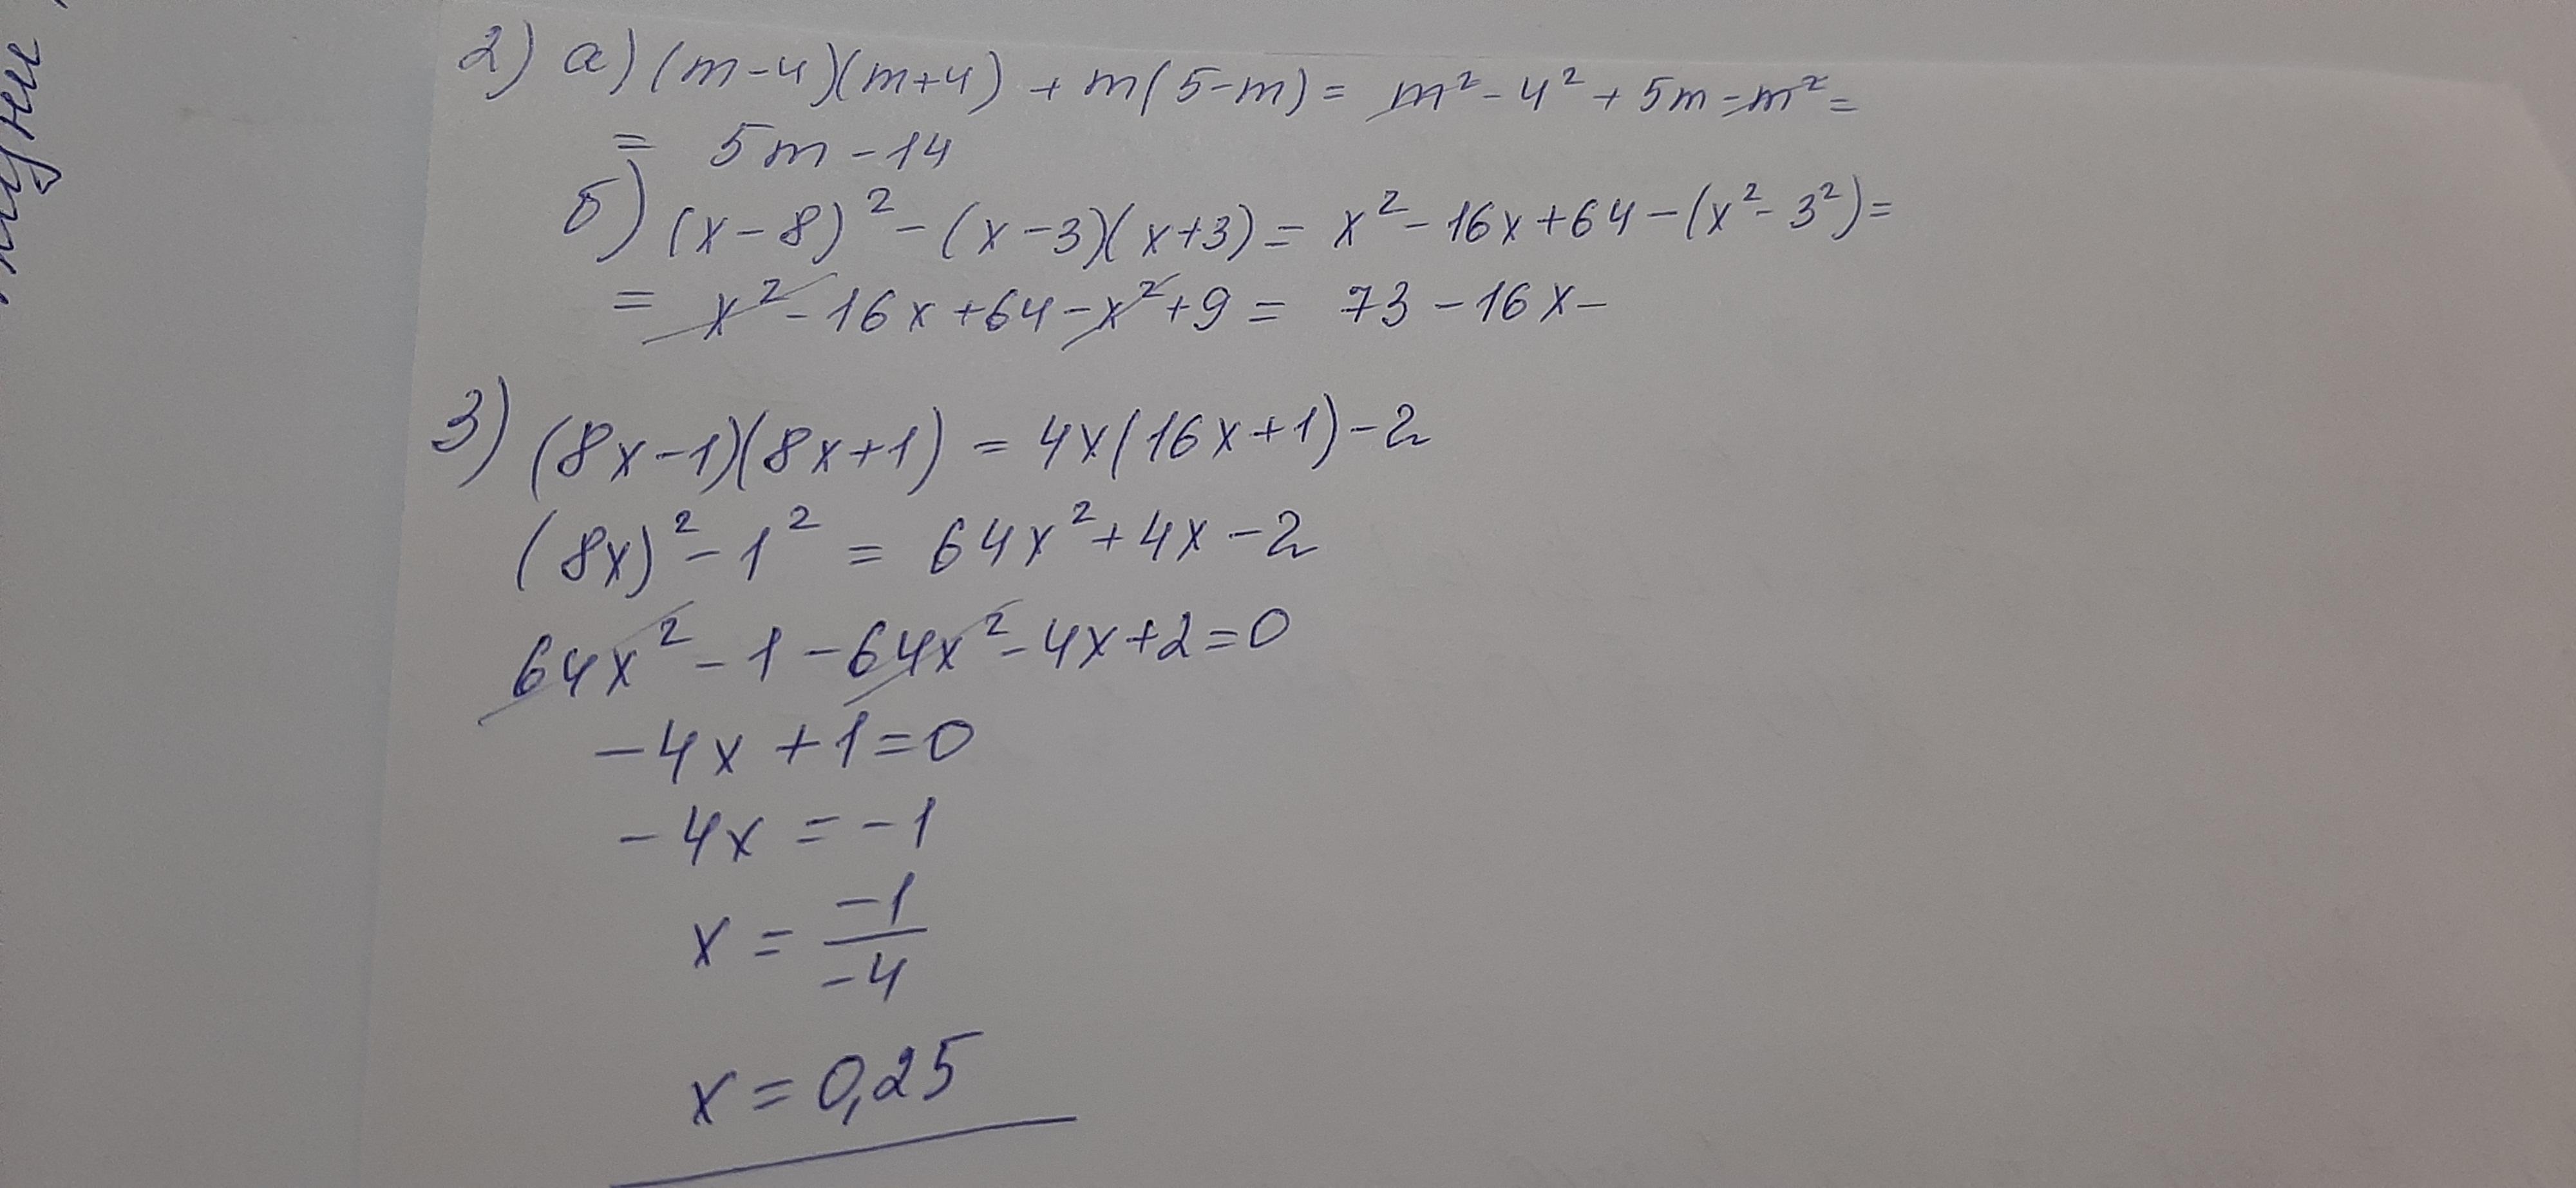 2) а) (m-4)(m+4) + m(5-m) = m² - 4² + 5m - m² =
= 5m - 14
б) (x-8)² - (x-3)(x+3) = x² - 16x + 64 - (x² - 3²) =
= x² - 16x + 64 - x² + 9 = 73 - 16x -
3) (8x-1)(8x+1) = 4x(16x+1) - 2
(8x)² - 1² = 64x² + 4x - 2
64x² - 1 - 64x² - 4x + 2 = 0
-4x + 1 = 0
-4x = -1
x = -1/-4
x = 0,25